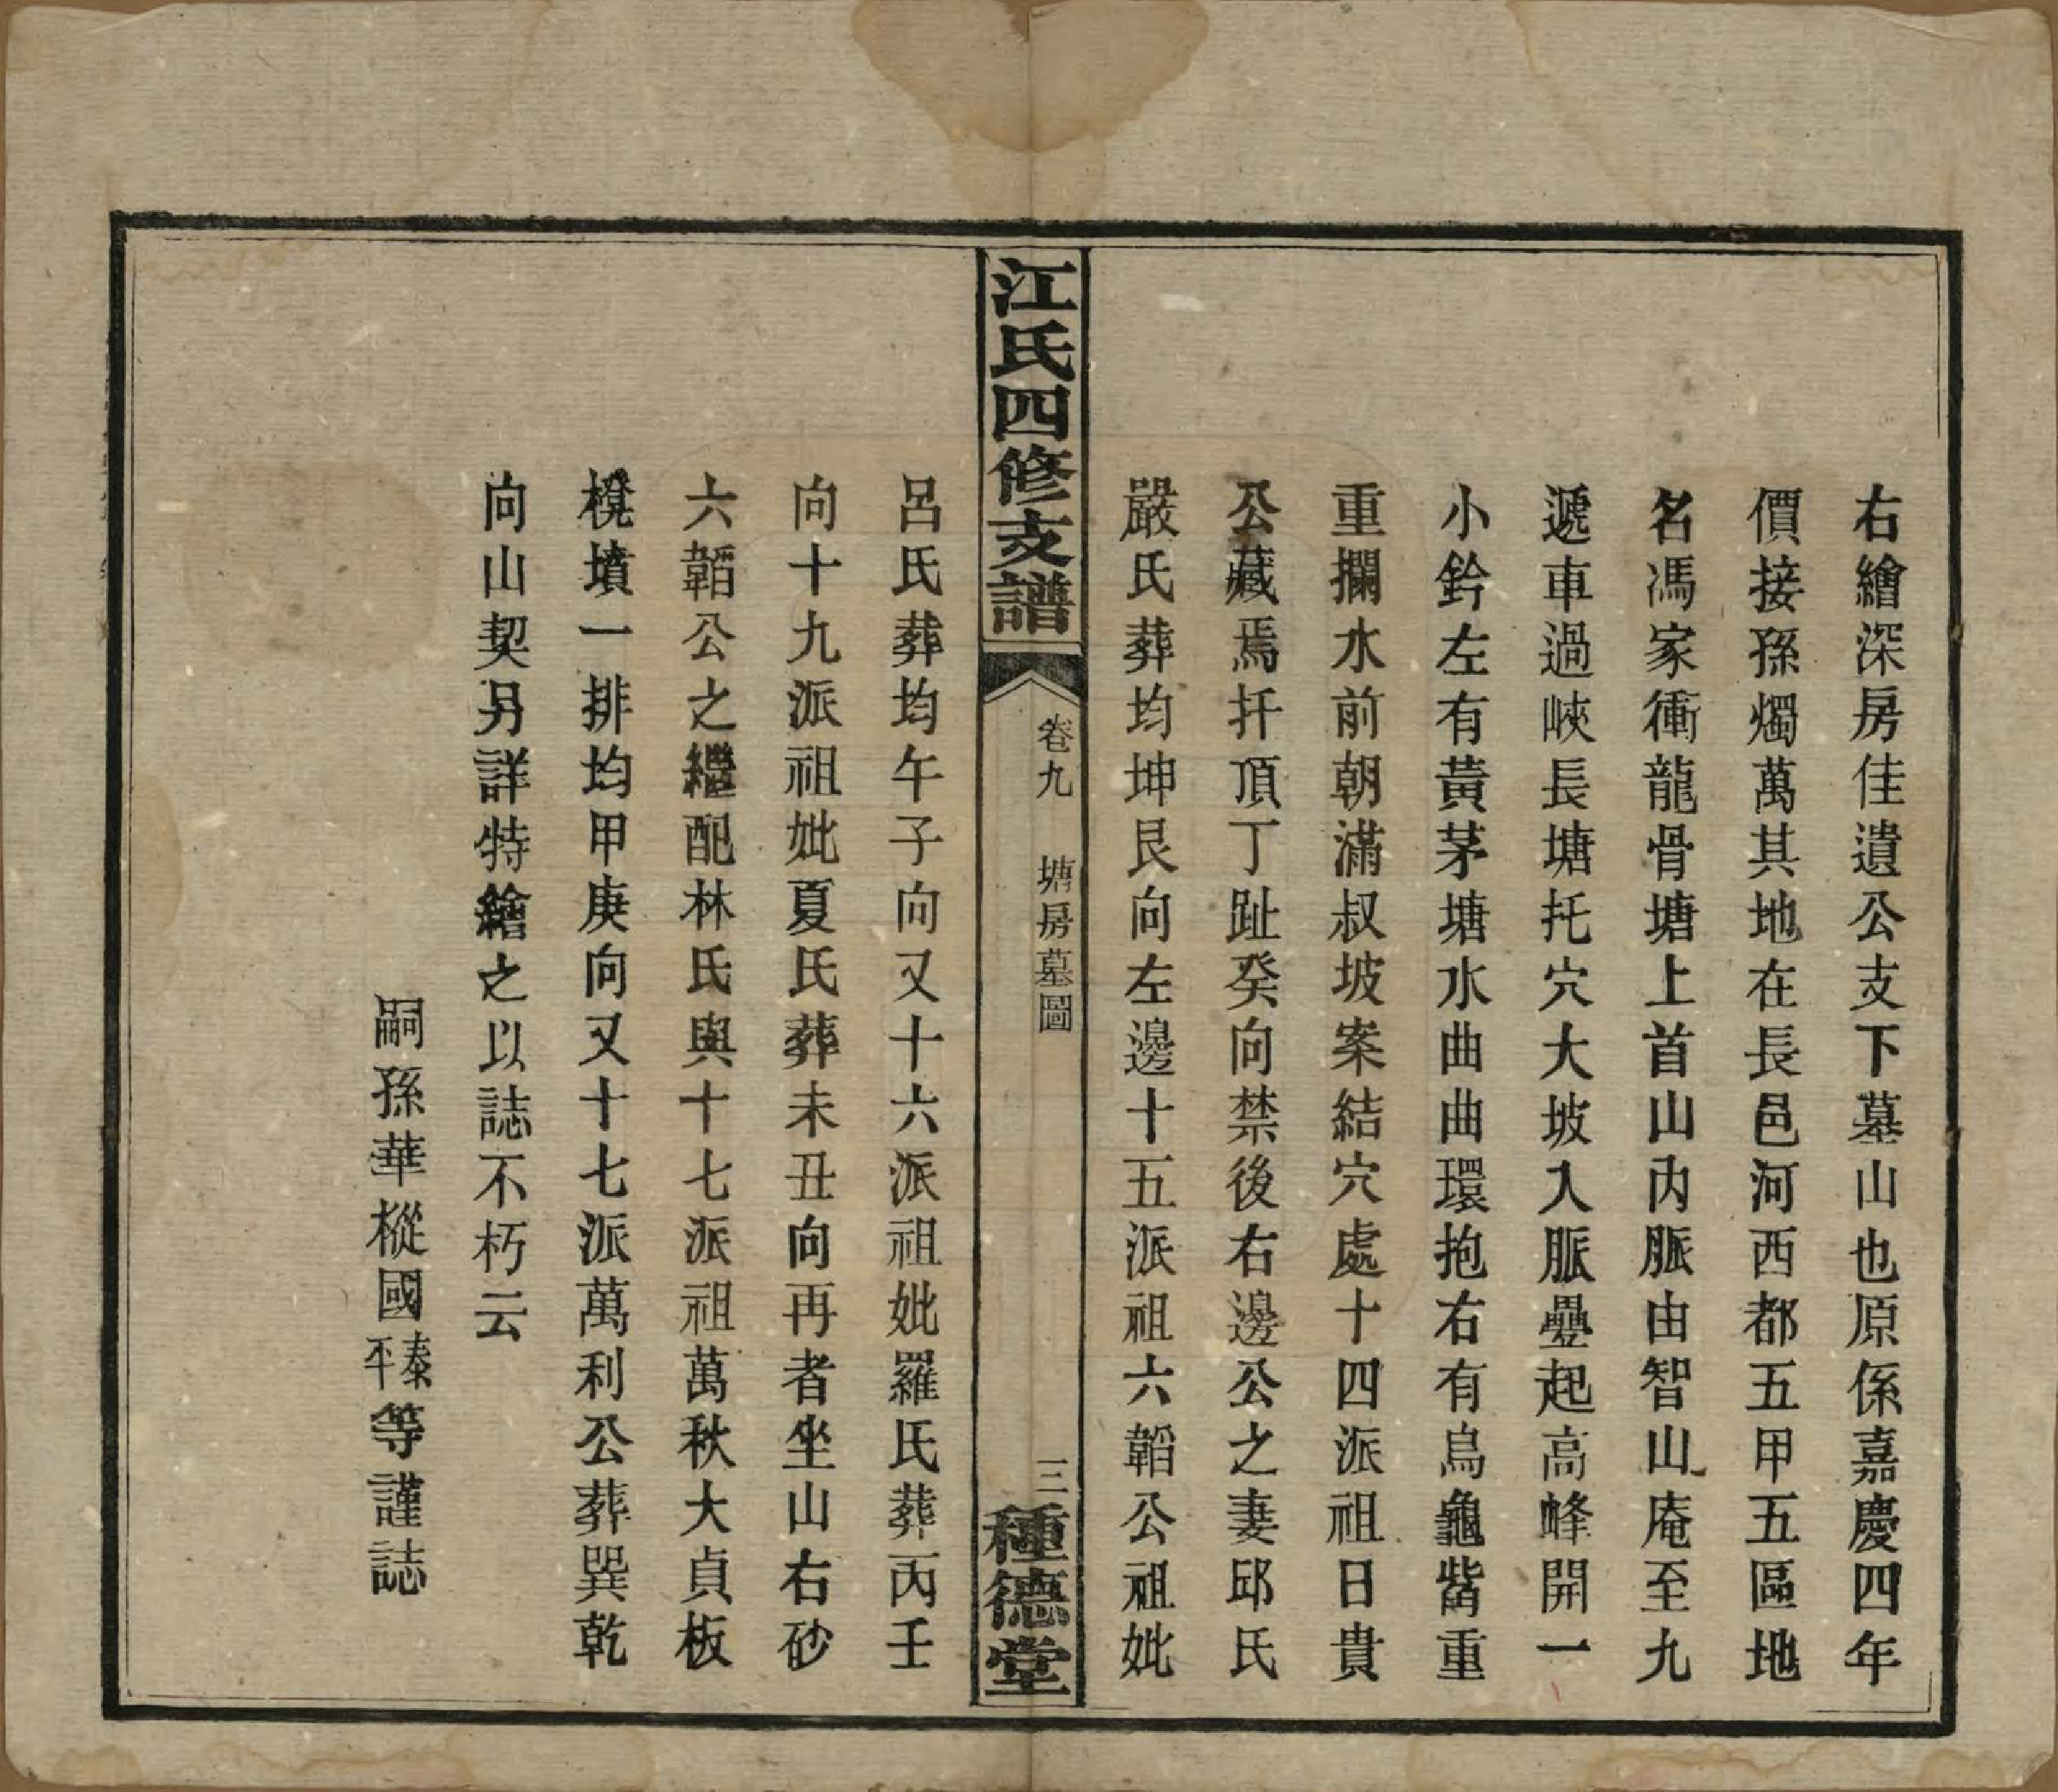 右繪深房佳遺公支下墓山也原係嘉慶四年
價接孫燭萬其地在長邑河西都五甲五區地
名馮家衝龍骨塘上首山內脈由智山庵至九
遞車過峽長塘托穴大坡入脈疊起高峰開一
小鈐左有黃茅塘水曲曲環抱右有烏龜觜重
重攔水前朝滿叔坡案結穴處十四派祖日貴
公藏焉扦頂丁趾癸向禁後右邊公之妻邱氏
嚴氏葬均坤艮向左邊十五派祖六韜公祖妣
江氏四修支譜
卷九 塘房墓圖
三
種德堂
呂氏葬均午子向又十六派祖妣羅氏葬丙壬
向十九派祖妣夏氏葬未丑向再者坐山右砂
六韜公之繼配林氏與十七派祖萬秋大貞板
櫈墳一排均甲庚向又十七派萬利公葬巽乾
向山契另詳特繪之以誌不朽云
嗣孫華樅國泰平等謹誌